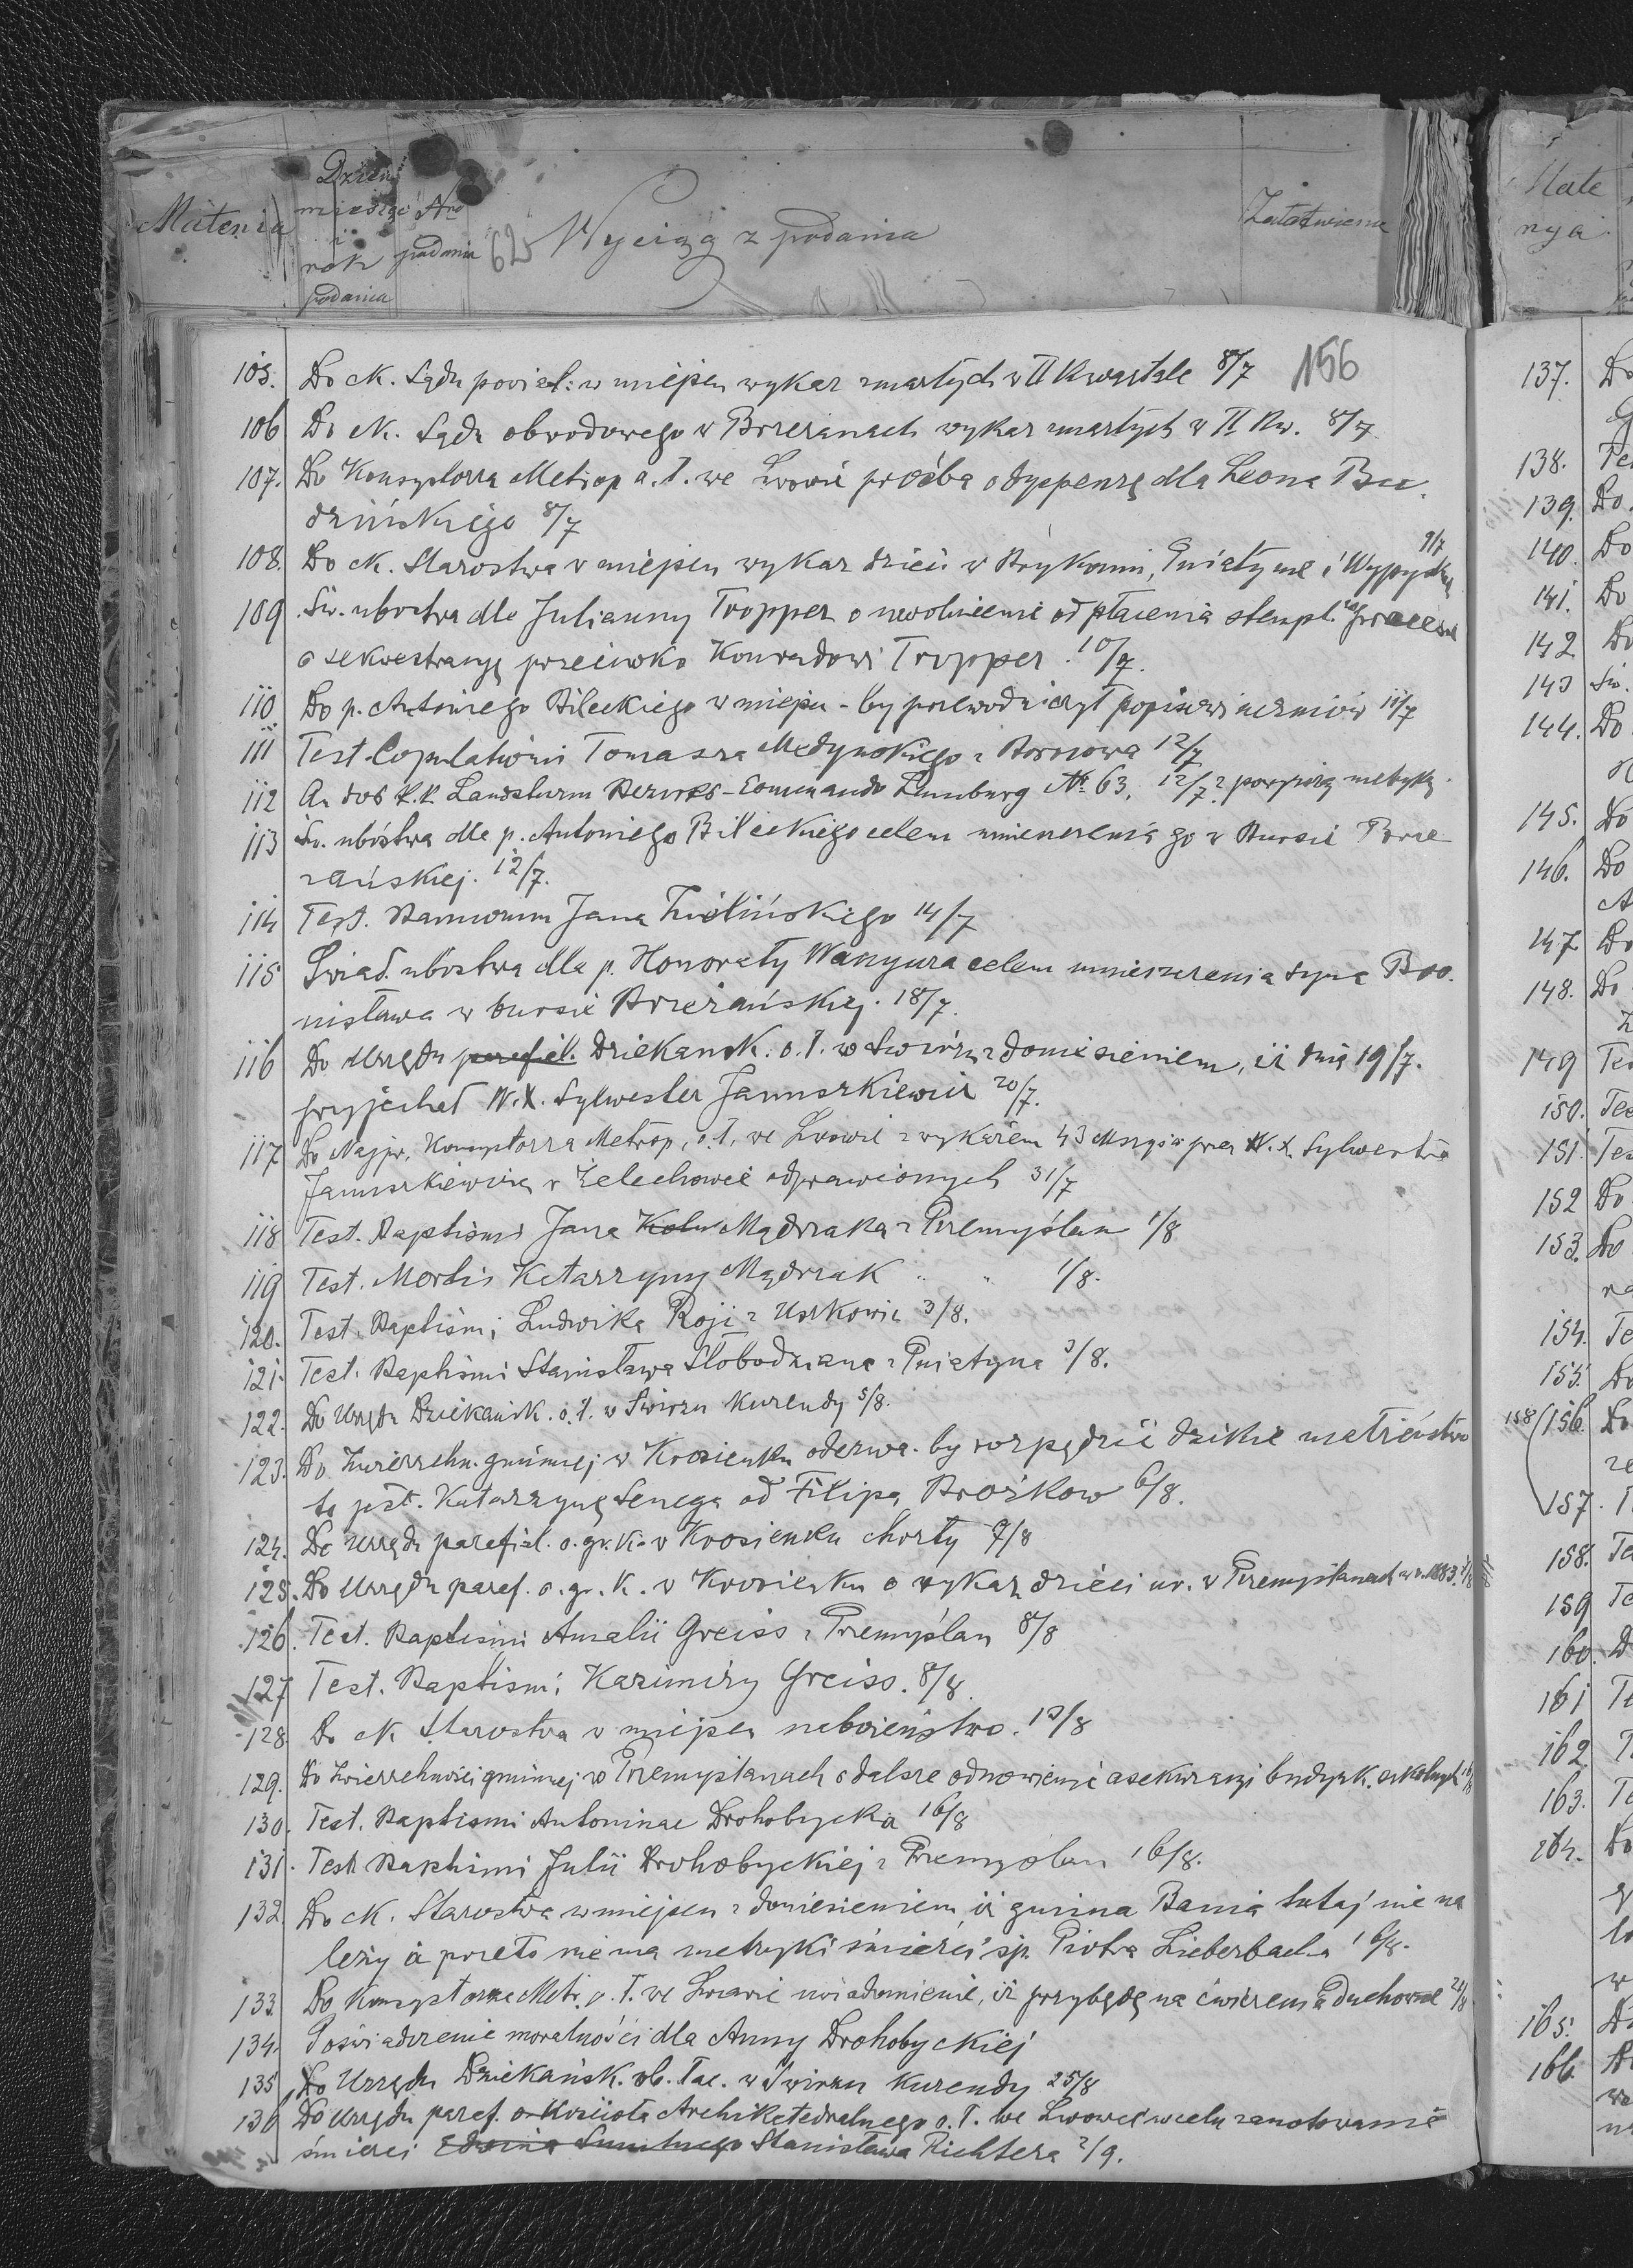 Materia
Dzień
miesiąc
i
rok
podania
Nro
podania
62
Wyciąg z podania
Załatwienie
Mate
rya
156
105. Do ck. Sądu powiat: w miejscu wykaz zmarłych w II Kwartale 8/7
106 Do ck. Sądu obwodowego w Brzeżanach wykaz zmarłych w II Kw. 8/7.
107. Do Konsystorza Metrop o. ł. we Lwowie prośba o dyspensę dla Leona Bu
dzińskiego 8/7
108. Do ck. Starostwa w miejscu wykaz dzieci w Brykoni, Gniatynie i Wypyskach 9/7
109 Św. ubóstwa dla Julianny Tropper o uwolnienie od płacenia stempl. procesu
o sekwestracyę przeciwko Konradowi Tropper. 10/7.
110. Do p. Antoniego Bileckiego w miejscu - by przewodniczył popisowi uczniów 11/7
111 Test. Copulationis Tomasza Medyńskiego z Borszowa 12/7
112 An das k.k. Landsturm Bezirks-Commando Lemburg No 63. 12/7. z metryką.
113 Św. ubóstwa dla p. Antoniego Bileckiego celem umieszczenia go w Bursie Brze
żańskiej. 12/7.
114 Test. Bannorum Jana Zielińskiego 14/7
115 Świad. ubóstwa dla p. Honoraty Wanyura celem umieszczenia syna Bro.
nisława w bursie Brzeżańskiej. 18/7.
116 Do Urzędu parafial. Dziekansk. o. ł. w Świrzu z doniesieniem, iż dnia 19/7.
przyjechał W. X. Sylwester Januszkiewicz 20/7.
117 Do Najprz. Konsystorza Metrop. o. ł. we Lwowie z wykazem 43 Mszy św przez W. X. Sylwestra
Januszkiewicza w Żelechowie odprawionych 31/7
118 Test. Baptismi Jana Mądrzaka z Przemyślan 1/8
119 Test. Mortis Katarzyny Mądrzak " " 1/8.
120. Test. Baptismi Ludwika Roji z Uszkowic 3/8.
121. Test. Baptismi Stanisława Słobodziana z Gniatyna 3/8.
122. Do Urzędu Dziekańsk. o. ł. w Świrzu Kurendy 5/8.
123. Do Zwierzchn. gminnej w Krosienku odezwa by rozpędzić dzikie małżeństwo
to jest. Katarzynę Senega od Filipa Brożkow 6/8.
124. Do Urzędu parafial. o. gr. k. w Krosienku Chorty 7/8
125. Do Urzędu paraf. o. gr. k. w Krosienku o wykaz dzieci ur. w Przemyślanach w r. 1883.
126. Test. Baptismi Amalii Greiss z Przemyślan 8/8
127 Test. Baptismi Kazimiry Greiss. 8/8.
128. Do ck Starostwa w miejscu nabożeństwo. 13/8
129. Do Zwierzchności gminnej w Przemyślanach o dalsze odnowienie asekuracyi budynk. szkolnych
130. Test. Baptismi Antoninae Drohobycka 16/8
131. Test. Baptismi Julii Drohobyckiej z Przemyślan 16/8.
132. Do ck. Starostwa w miejscu z doniesieniem iż gmina Bania tutaj nie na
leży i przeto nie ma metryki śmierci śp. Piotra Lieberbacha 16/8.
133. Do Konsystorza Metr. o. ł. we Lwowie uwiadomienie, iż przybędę na ćwiczenia duchowne 24/8
134. Poświadczenie moralności dla Anny Drohobyckiej
135 Do Urzędu Dziekańsk. ob. łac. w Świrzu Kurendy 25/8
136 Do Urzędu paraf. Kościoła Archikatedralnego o. ł. we Lwowie w celu zanotowania
śmierci Stanisława Richtera 2/9.
137. Do
138. Te
139. Do
140. Do
141. Do
142 Do
143 Św.
144. Do
145. Do
146. Do
147. Do
148. Do
149 Tes
150. Tes
151. Tes
152 Do
153. Do
154. Te
155. Do
158/156. Do
157.
158. Te
159 Te
160. D
161 Te
162
163. Te
164. Do
165. Do
166.